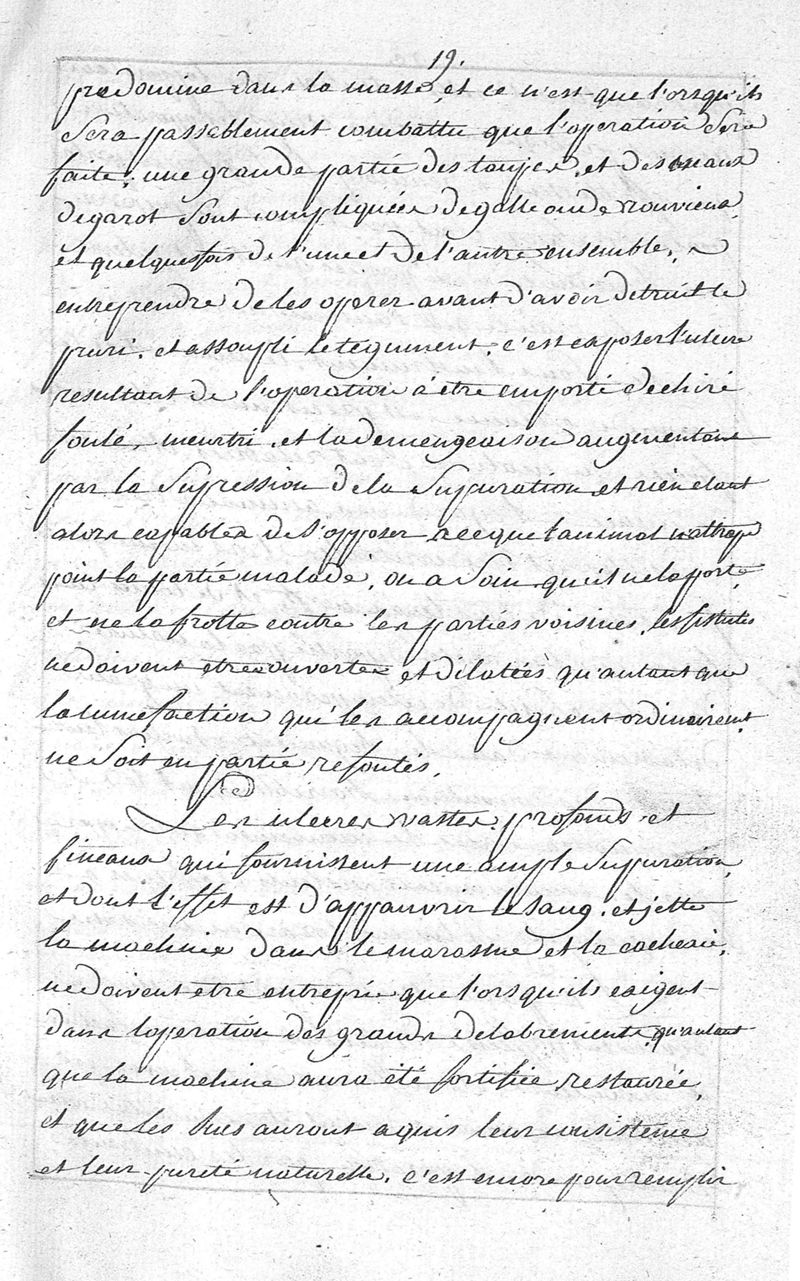 19.
predomine dans la masse, et ce n'est que l'orsqu'ils
Sera passablement combattu que l'operation Sera
faite; une grande partie des taupes, et des maux
de garot Sont compliquées de galle ou de rouvieux,
et quelquesfois de l'une et de l'autre ensemble,
entreprendre de les operer avant d'avoir detruit le
pruri, et assoupli le tegument, c'est exposer l'ulcere
resultant de l'operation à être emporté dechiré
foulé, meurtri, et la demengeaison augmentant
par la Supression de la Supuration, et rien etant
alors capables de S'opposer a ceque l'animal n'attrape
point la partie malade, on a Soin qu'il ne la porte
et ne la frotte contre les parties voisines, les fistules
ne doivent etre ouvertes et dilatées qu'autant que
la tumefaction qui les accompagnent ordinairemt
ne Soit en partie resoutes.
Les ulceres vastes, profonds et
fineaux qui fournissent une ample Supuration,
et dont l'effet est d'appauvrir le Sang, et jette
la machine dans le marasme et la cachexie,
ne doivent etre entrepris que l'orsqu'ils exigent
dans l'operation des grands delabrements, qu'autant
que la machine aura été fortifiée, restaurée,
et que les hues auront aquis leur consistence
et leur pureté naturelle, c'est encore pour remplir